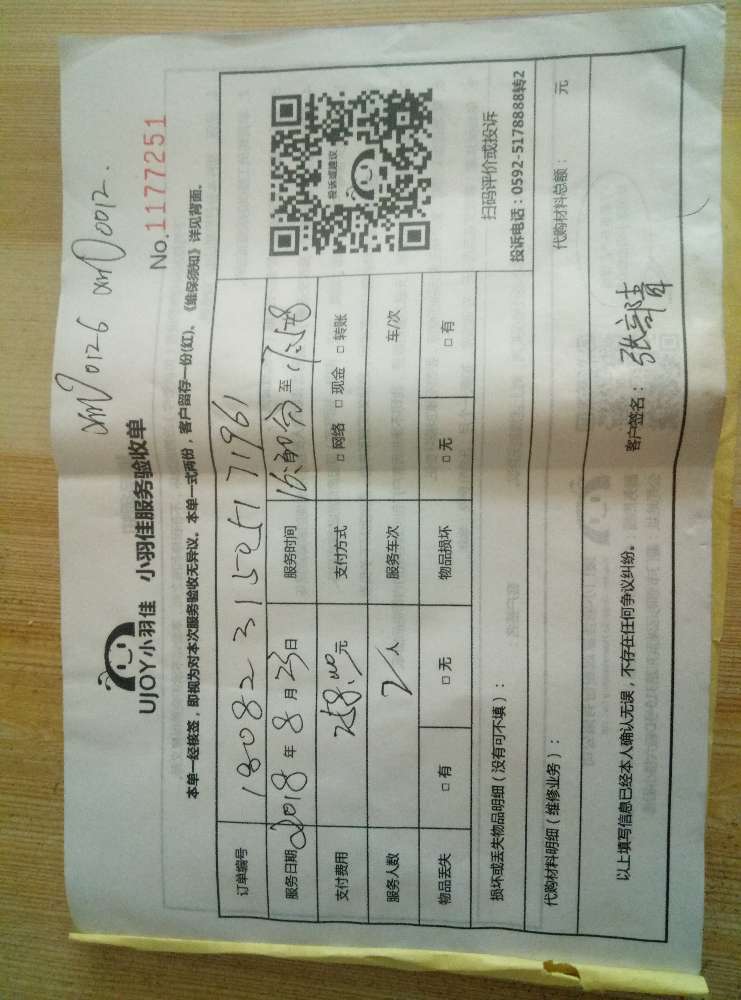 No.11772​51
UJOY小羽佳 小羽佳服务验收单
本单一经核签，即视为对本次服务验收无异议。本单一式两份，客户留存一份(红)、《维保须知》详见背面。
订单编号 18082315257171961
服务日期 2018 年 8 月 23 日 服务时间 至
支付费用 元 支付方式 □ 网络 □ 现金 □ 转账
服务人数 2 人 服务车次 车/次
物品丢失 □ 有 □ 无 物品损坏 □ 无 □ 有
投诉或建议
扫码评价或投诉
投诉电话：0592-5178888转2
损坏或丢失物品明细（没有可不填）：
代购材料明细（维修业务）： 代购材料总额： 元
以上填写信息已经本人确认无误，不存在任何争议纠纷。 客户签名：